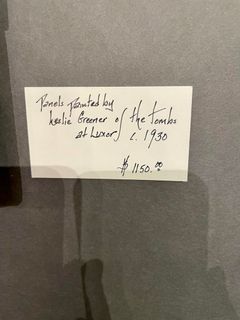 Panels Painted by
Leslie Greener of the Tombs
at Luxor c. 1930
$ 1150.00